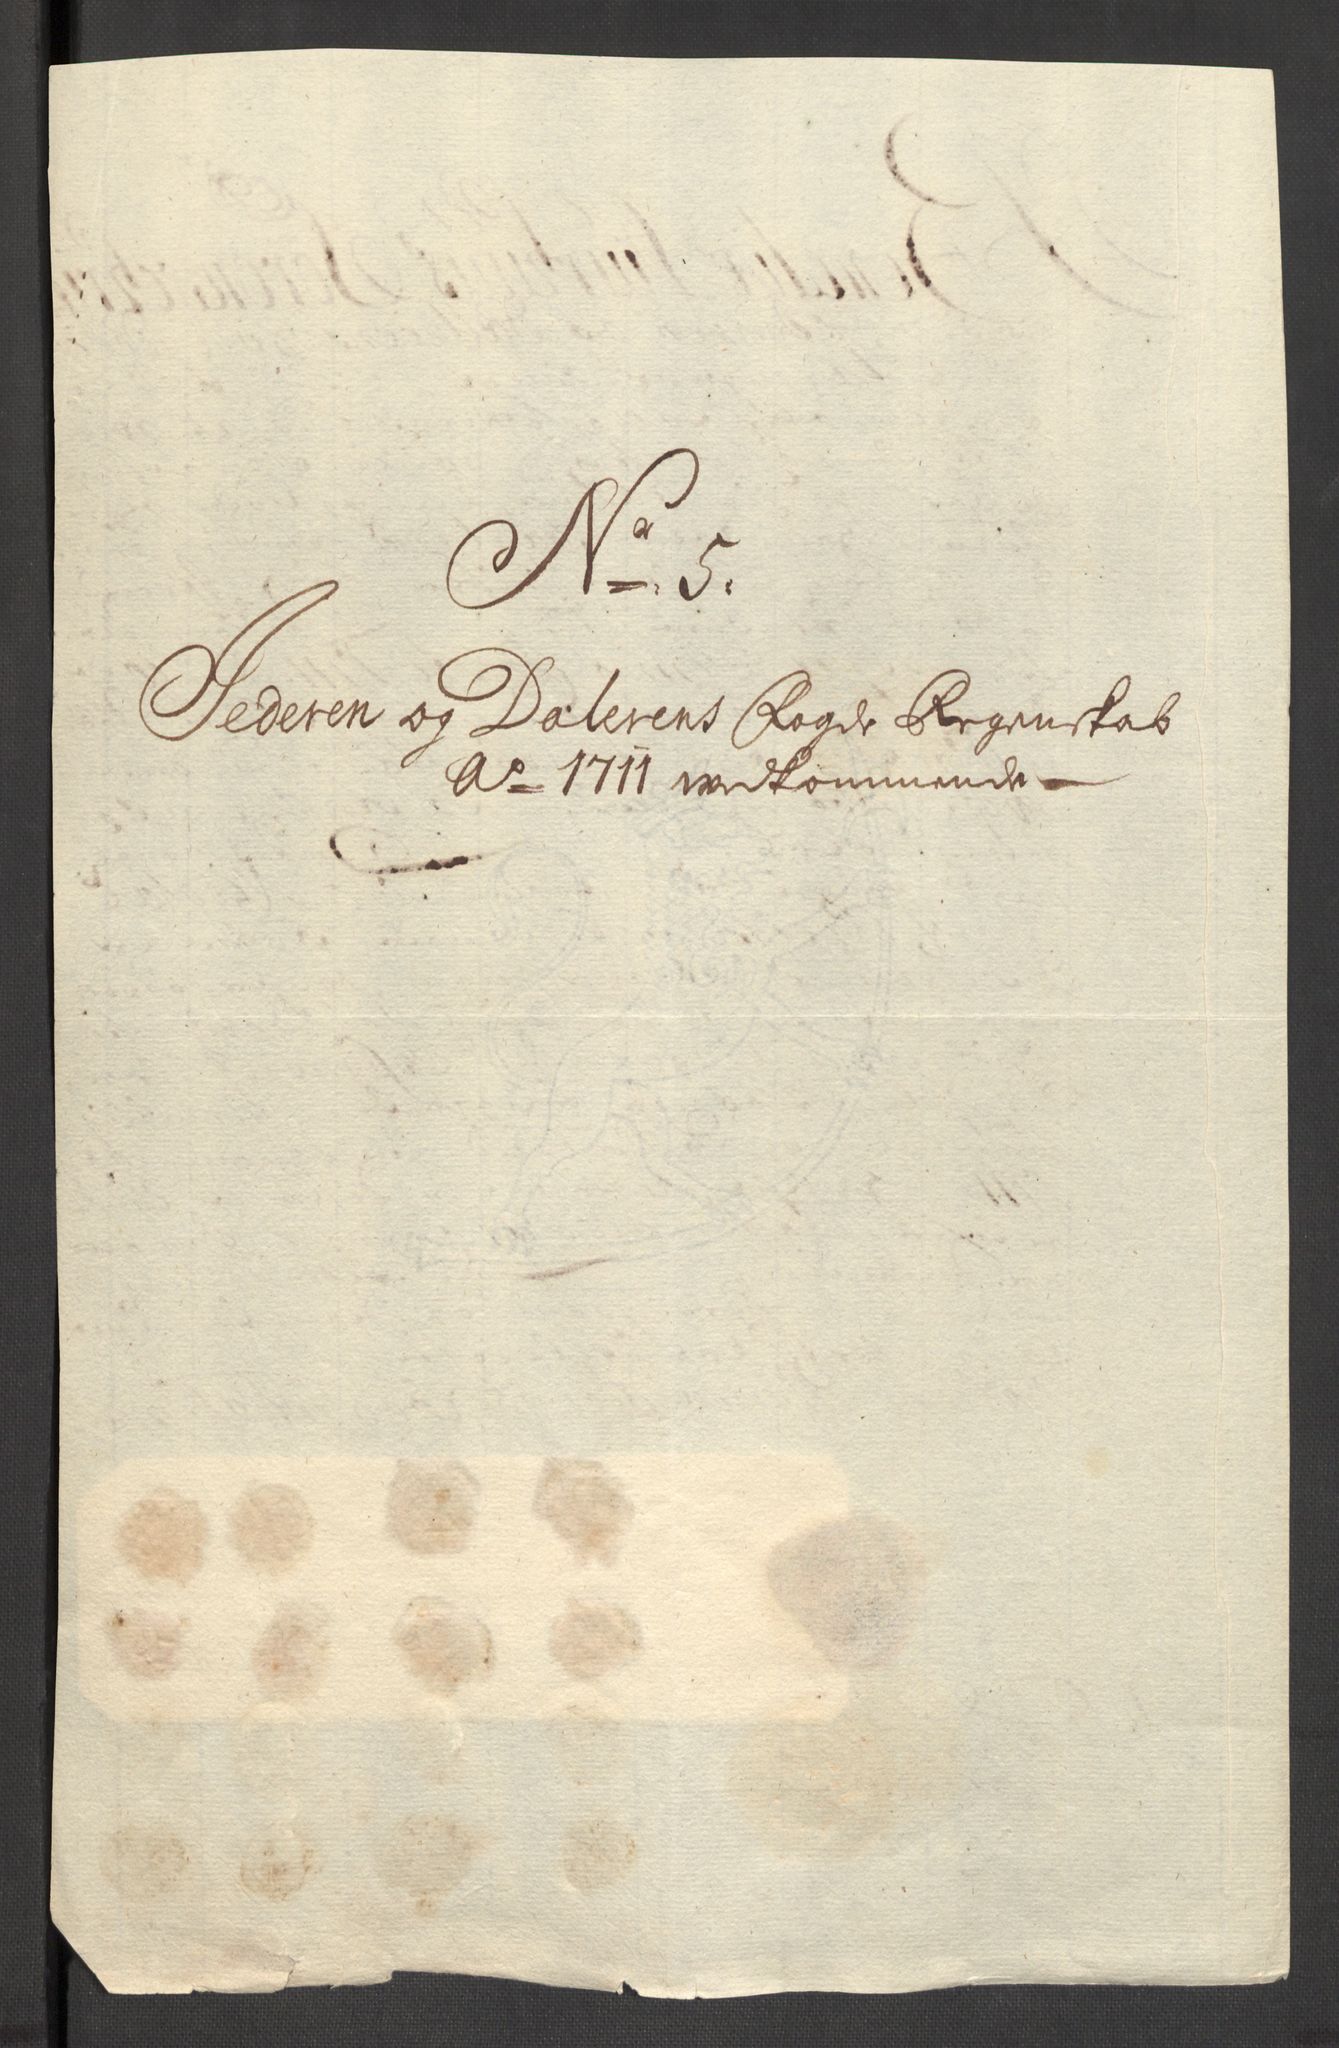 No. 5.
Jederen og Dalerens Fogde Regenskab
Ao 1711 vedkommende